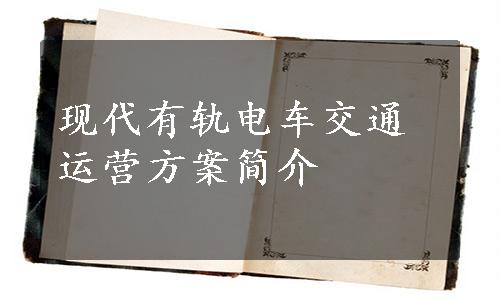 现代有轨电车交通
运营方案简介